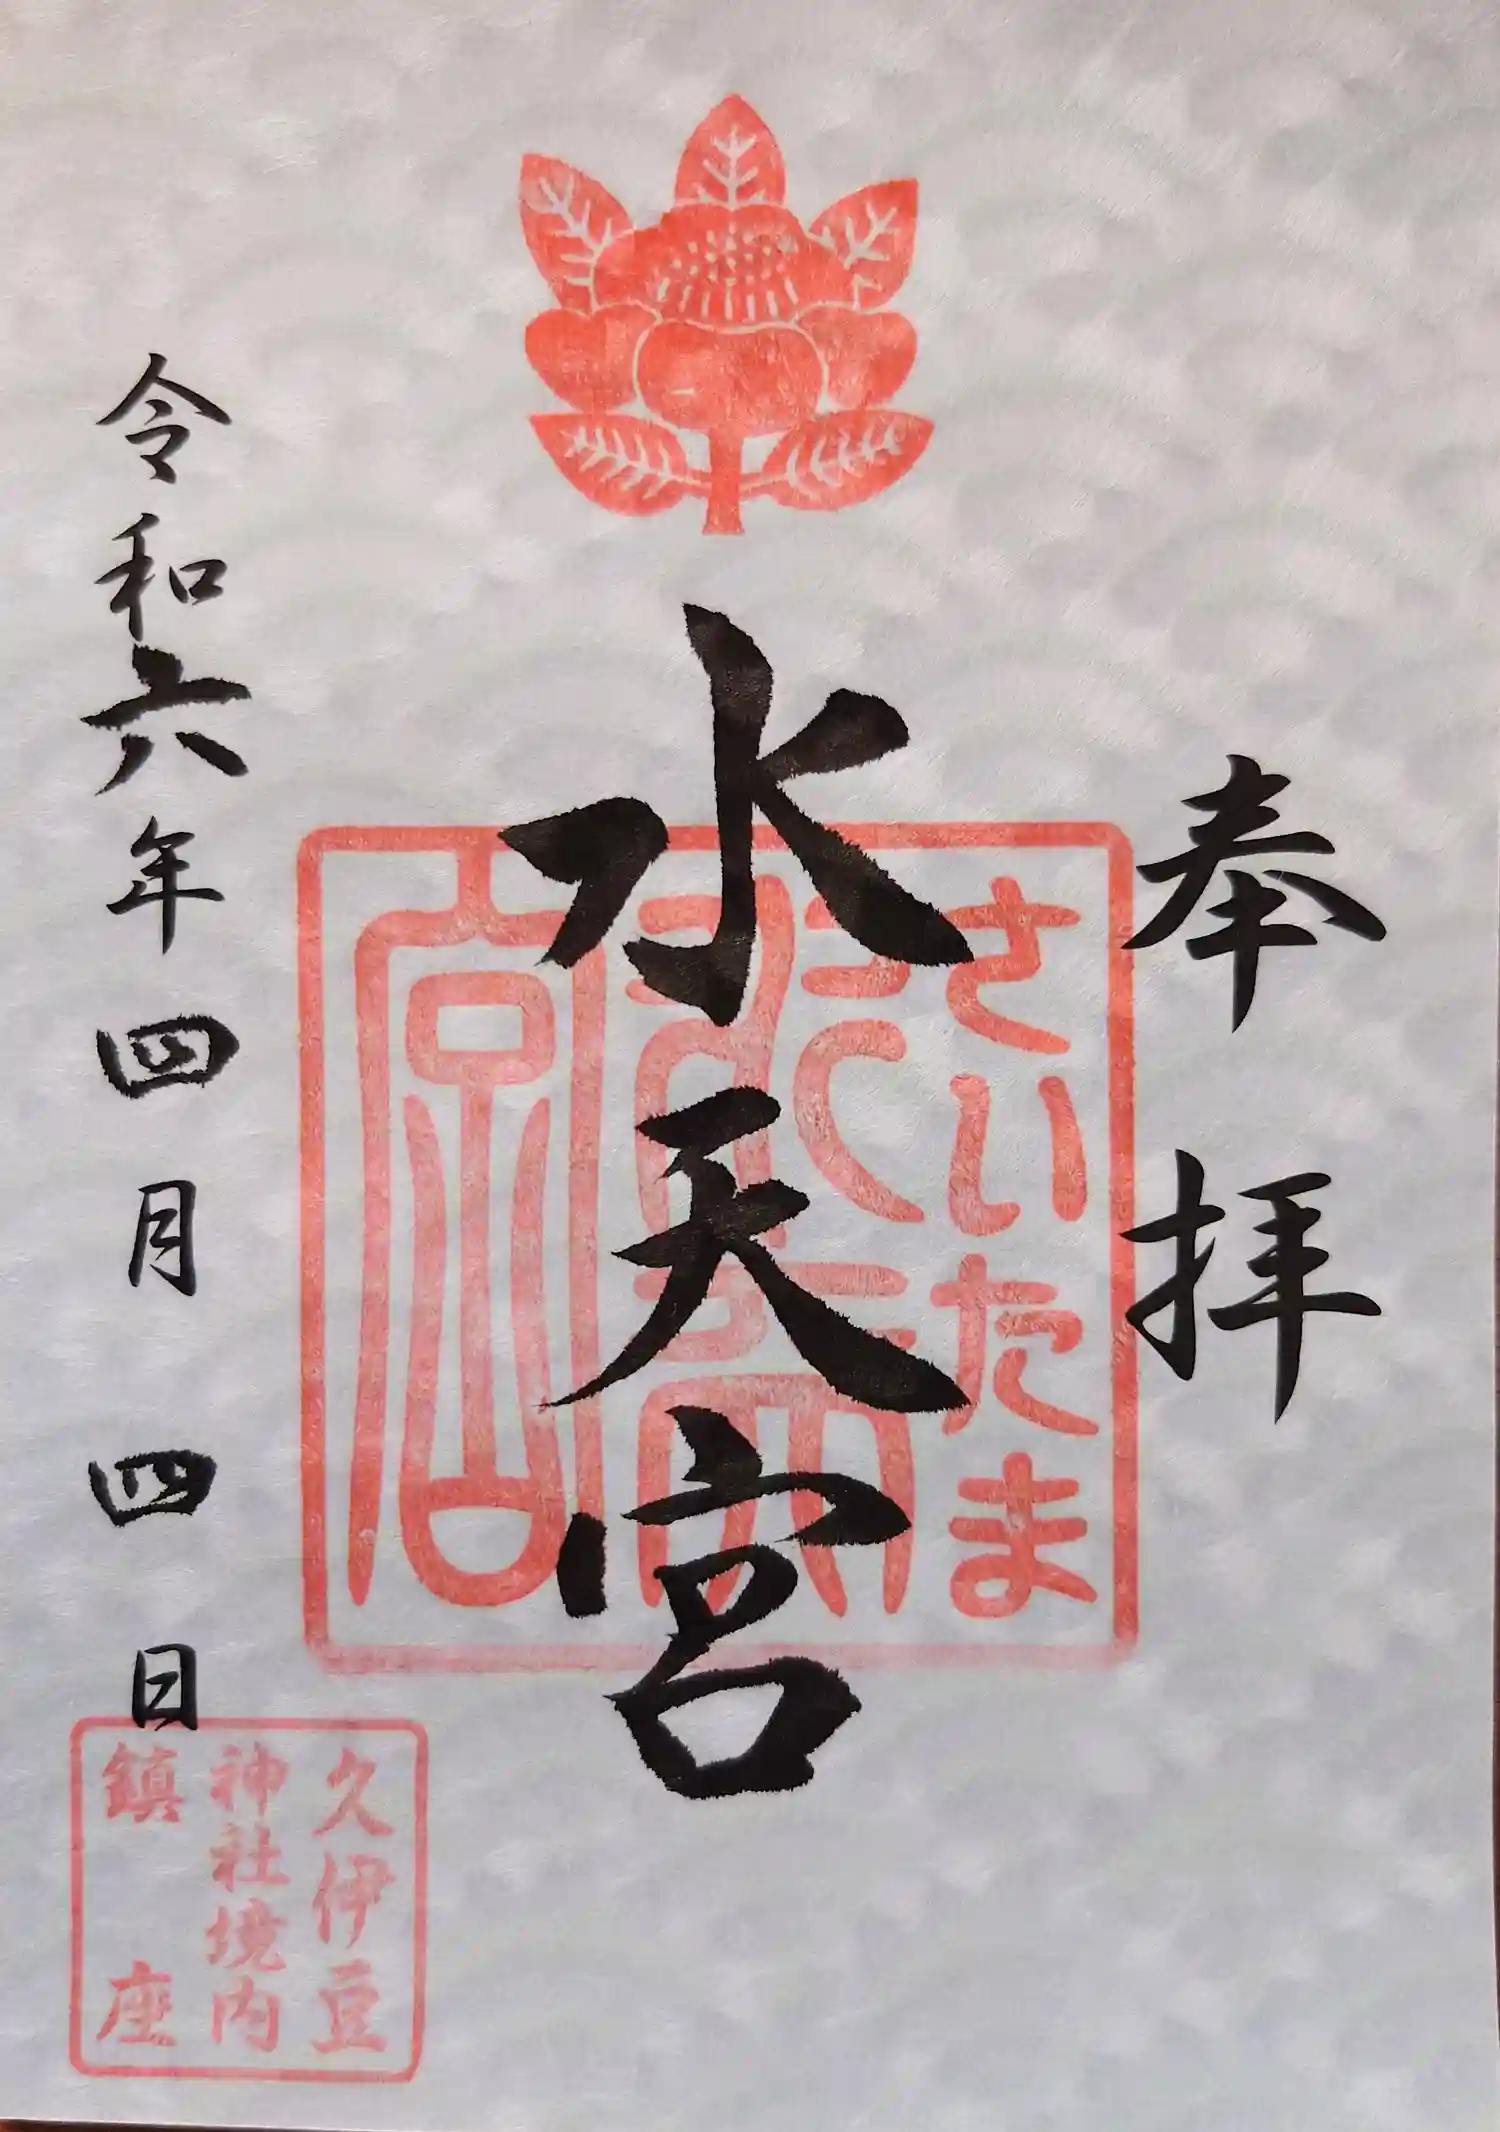 奉拝
水天宮
さいたま
こ
天
宮
令和六年四月四日
久伊豆
神社境内
鎮座